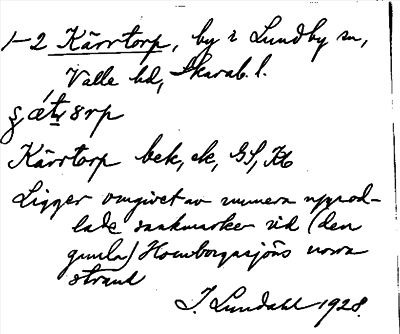 1-2 Kärrtorp, by i Lundby sn,
Valle hd, Skarab. l.
Kärrtorp bek, ek, GS, Kb
Ligger omgivet av numera uppod-
lade sankmarker vid (den
gamla) Hornborgasjöns norra
strand
I. Lundahl 1928.